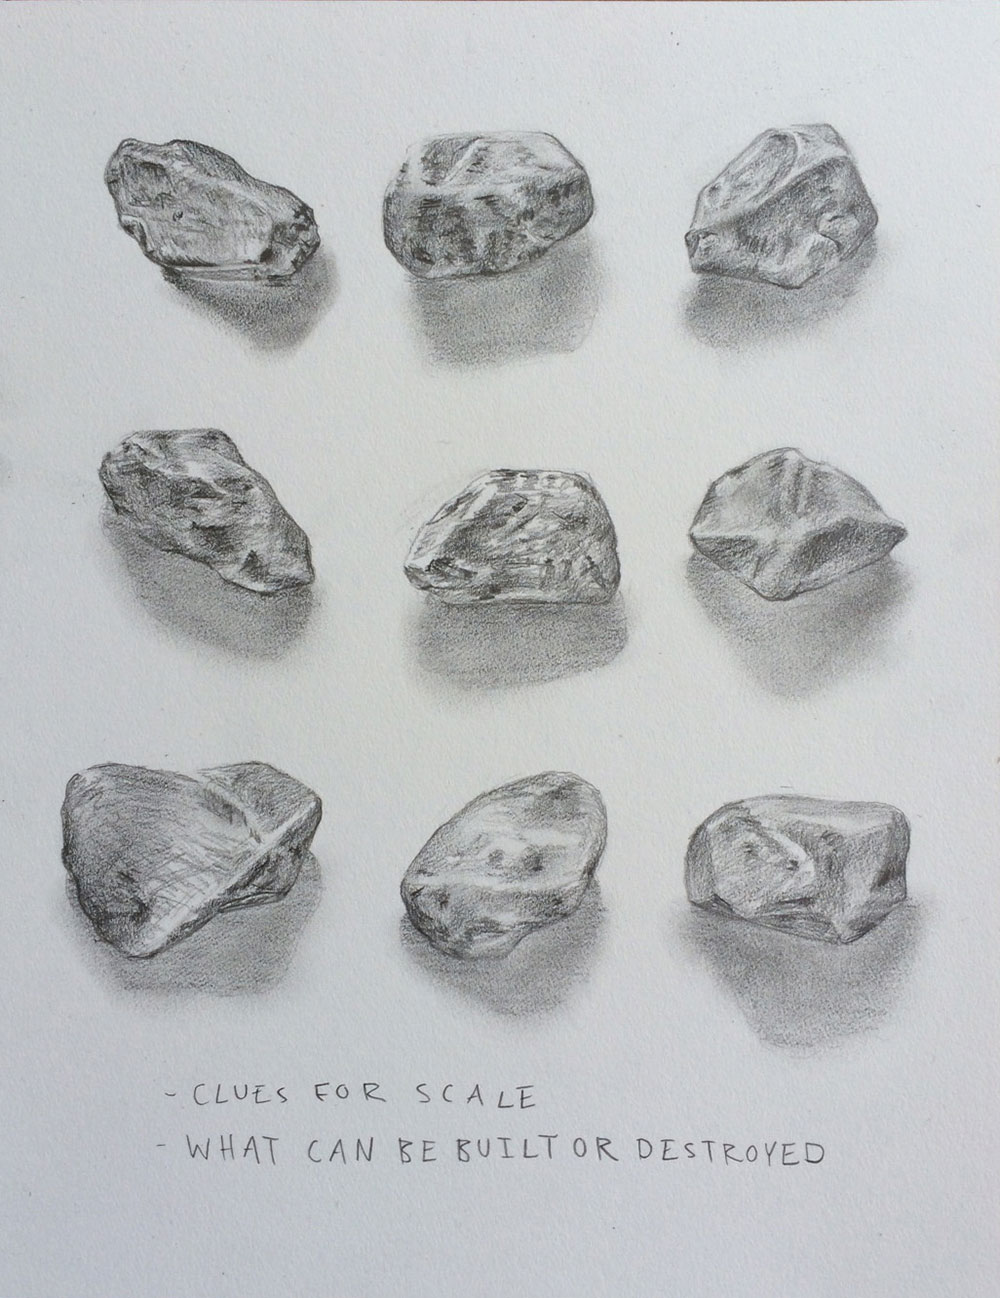 - CLUES FOR SCALE
- WHAT CAN BE BUILT OR DESTROYED